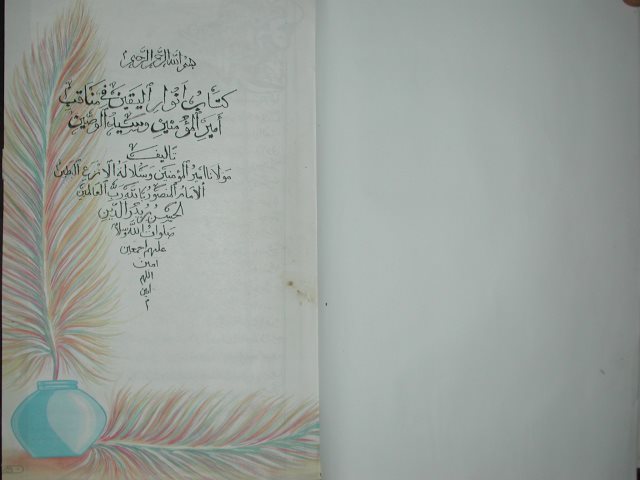 بسم الله الرحمن الرحيم
كتاب أنوار اليقين في مناقب
أمير المؤمنين وسيد الوصيين
تأليف
مولانا أمير المؤمنين وسلالة الأنزع البطين
الإمام المنصور بالله رب العالمين
الحسن بن بدر الدين
صلوات الله وسلامه
عليهم اجمعين
امين
اللهم
امين